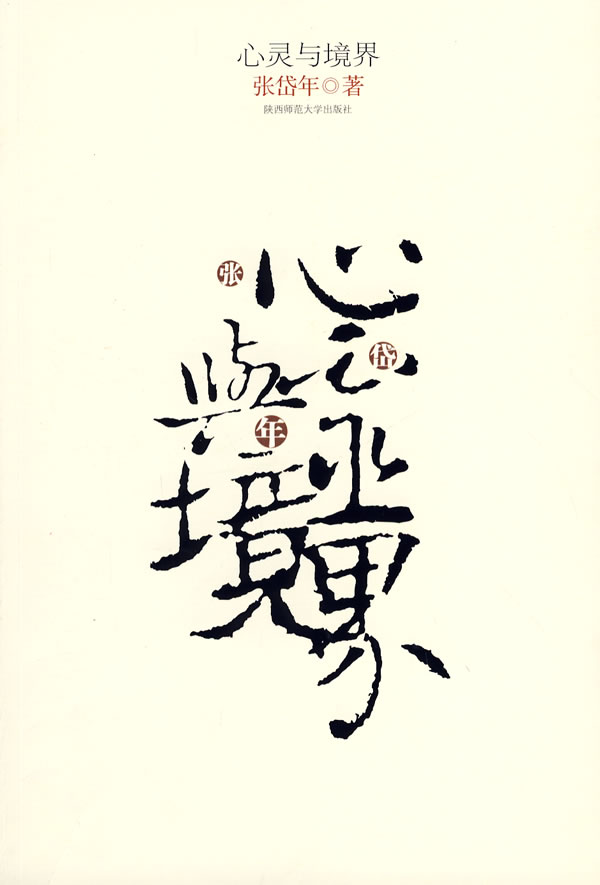 心灵与境界
张岱年◎著
陕西师范大学出版社
张
心
岱
與
年
境
界